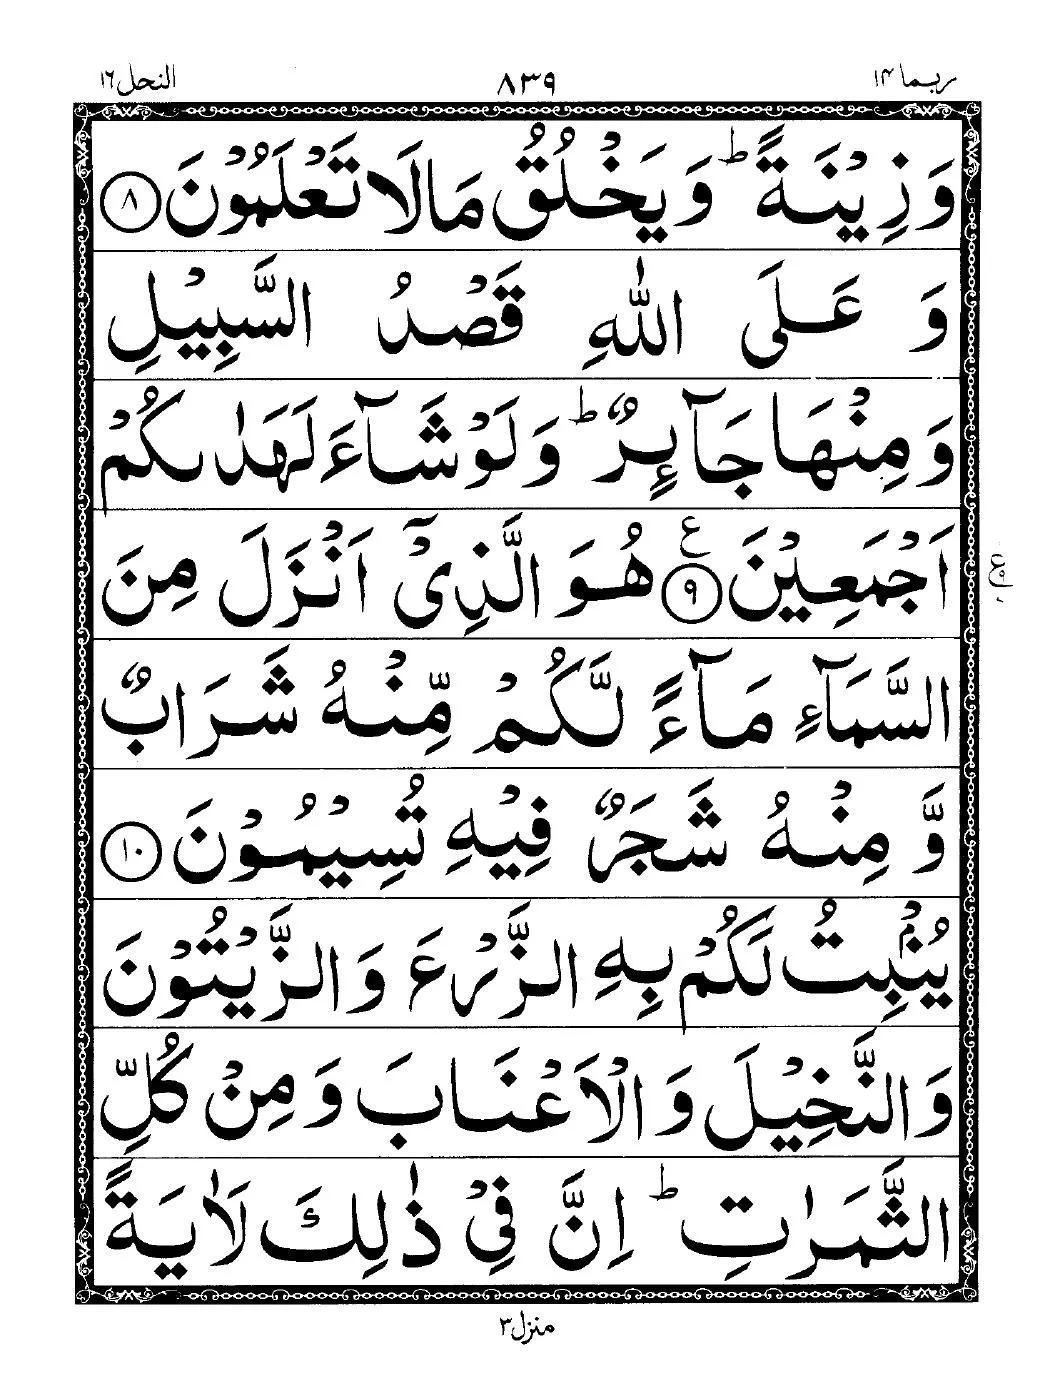 ربما ١٤ ٨٣٩ النحل ١٦
وَ زِيْنَةً ؕ وَ يَخْلُقُ مَا لَا تَعْلَمُوْنَ ٨
وَ عَلَى اللّٰهِ قَصْدُ السَّبِيْلِ
وَ مِنْهَا جَآىِٕرٌ ؕ وَ لَوْ شَآءَ لَهَدٰىكُمْ
اَجْمَعِيْنَ ٩ ع هُوَ الَّذِيْۤ اَنْزَلَ مِنَ
ع
السَّمَآءِ مَآءً لَّكُمْ مِّنْهُ شَرَابٌ
وَّ مِنْهُ شَجَرٌ فِيْهِ تُسِيْمُوْنَ ١٠
يُنْۢبِتُ لَكُمْ بِهِ الزَّرْعَ وَ الزَّيْتُوْنَ
وَ النَّخِيْلَ وَ الْاَعْنَابَ وَ مِنْ كُلِّ
الثَّمَرٰتِ ؕ اِنَّ فِيْ ذٰلِكَ لَاٰيَةً
منزل ٣